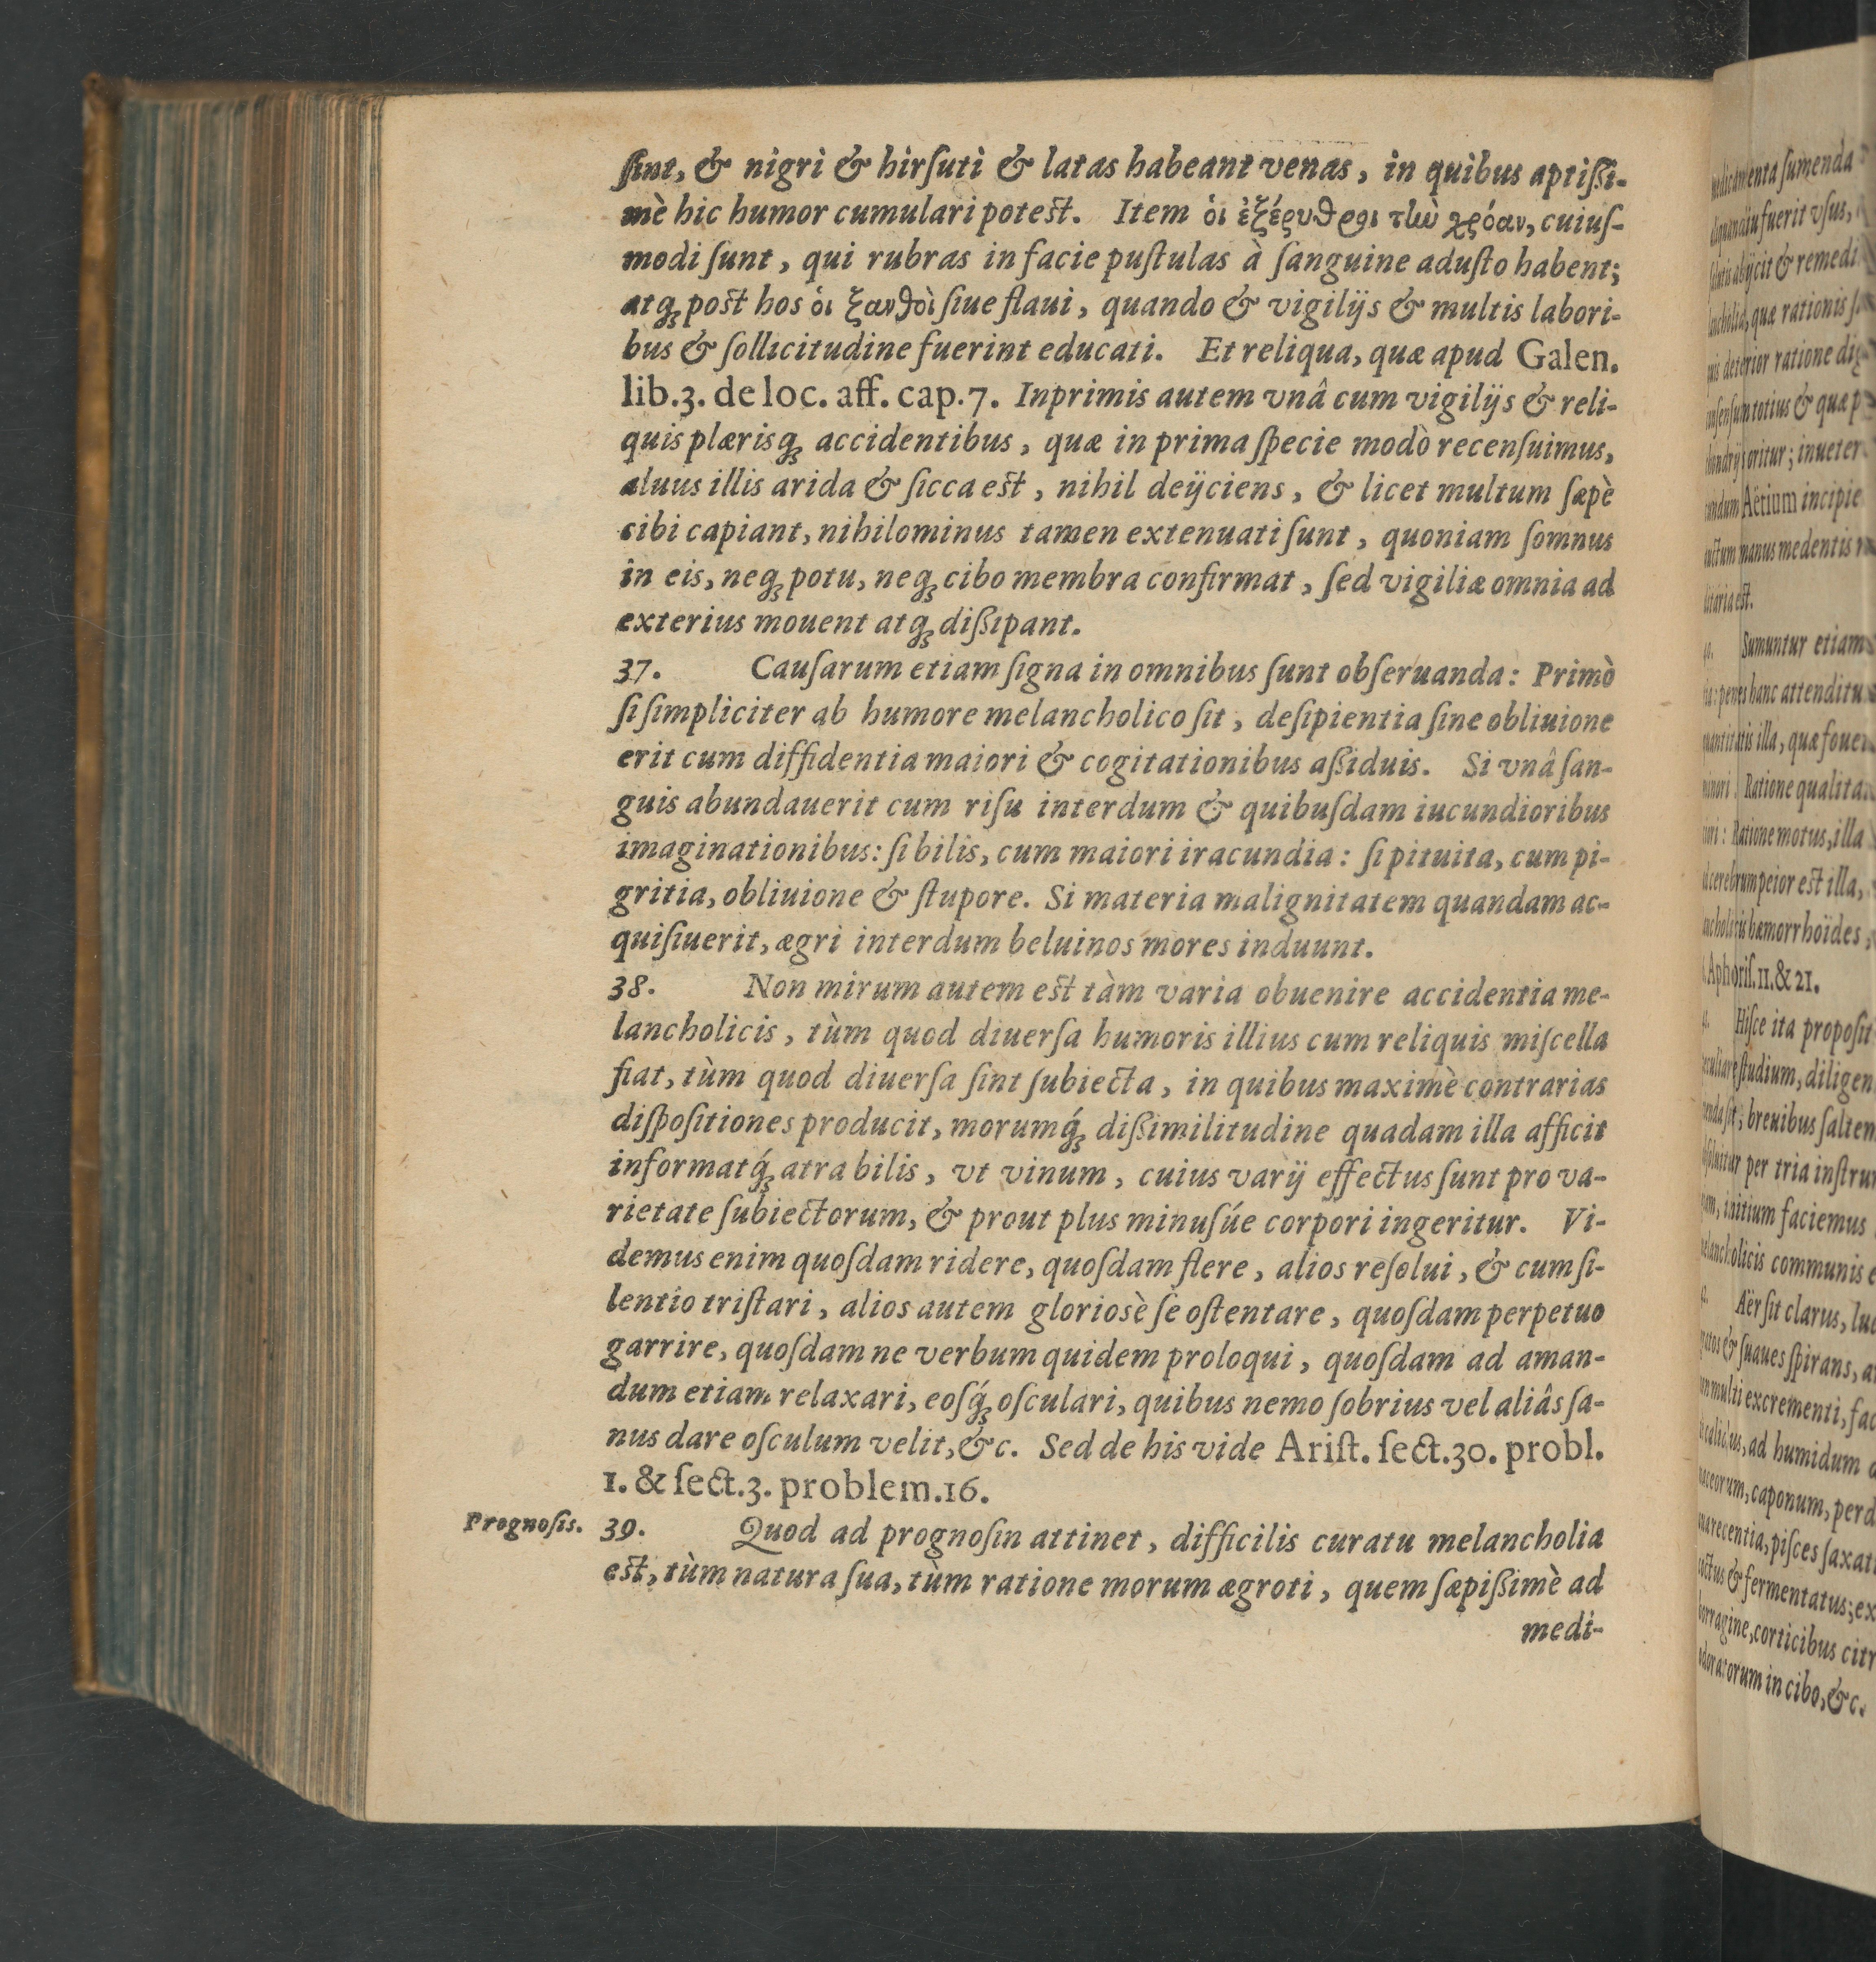 ſint, & nigri & hirſuti & latas habeant venas, in quibus aptiſſi-
mè hic humor cumulari potest. Item ὁι ἐξέρυθροι τὼ χρόαν, cuiuſ-
modi ſunt, qui rubras in facie puſtulas à ſanguine aduſto habent;
atq; post hos ὁι ξανθοὶ ſiue flaui, quando & vigilijs & multis labori-
bus & ſollicitudine fuerint educati. Et reliqua, quæ apud Galen.
lib.3. de loc. aff. cap.7. Inprimis autem vnâ cum vigilijs & reli-
quis plærisq; accidentibus, quæ in prima ſpecie modò recenſuimus,
aluus illis arida & ſicca est, nihil deijciens, & licet multum ſæpè
cibi capiant, nihilominus tamen extenuati ſunt, quoniam ſomnus
in eis, neq; potu, neq; cibo membra confirmat, ſed vigiliæ omnia ad
exterius mouent atq; diſſipant.
37. Cauſarum etiam ſigna in omnibus ſunt obſeruanda: Primò
ſi ſimpliciter ab humore melancholico ſit, deſipientia ſine obliuione
erit cum diffidentia maiori & cogitationibus aſſiduis. Si vnâ ſan-
guis abundauerit cum riſu interdum & quibuſdam iucundioribus
imaginationibus: ſi bilis, cum maiori iracundia: ſi pituita, cum pi-
gritia, obliuione & ſtupore. Si materia malignitatem quandam ac-
quiſiuerit, ægri interdum beluinos mores induunt.
38. Non mirum autem est tàm varia obuenire accidentia me-
lancholicis, tùm quod diuerſa humoris illius cum reliquis miſcella
fiat, tùm quod diuerſa ſint ſubiecta, in quibus maximè contrarias
diſpoſitiones producit, morumq́; diſſimilitudine quadam illa afficit
informatq́; atra bilis, vt vinum, cuius varij effectus ſunt pro va-
rietate ſubiectorum, & prout plus minuſúe corpori ingeritur. Vi-
demus enim quoſdam ridere, quoſdam flere, alios reſolui, & cum ſi-
lentio triſtari, alios autem glorioſè ſe oſtentare, quoſdam perpetuo
garrire, quoſdam ne verbum quidem proloqui, quoſdam ad aman-
dum etiam relaxari, eoſq́; oſculari, quibus nemo ſobrius vel aliâs ſa-
nus dare oſculum velit, &c. Sed de his vide Ariſt. ſect.30. probl.
1. & ſect.3. problem.16.
Prognoſis.
39. Quod ad prognoſin attinet, difficilis curatu melancholia
est, tùm natura ſua, tùm ratione morum ægroti, quem ſæpiſſimè ad
medi-
ſumenda
fuerit vſus,
& remedi
quæ rationis
deterior ratione
totius & quæ
oritur; inueter
Aëtium incipie
manus medentis
est.
Sumuntur etiam
hanc attenditu
illa, quæ foue
Ratione qualita
Ratione motus, illa
peior est illa,
hæmorrhoïdes,
Aphoriſ.11.& 21.
Hiſce ita propoſit
ſtudium, diligen
breuibus ſalten
per tria inſtru
initium faciemus
communis e
Aër ſit clarus, luc
& ſuaues ſpirans,
multi excrementi, fac
ad humidum
caponum, perd
piſces ſaxat
& fermentatus; ex
corticibus citr
in cibo, &c.